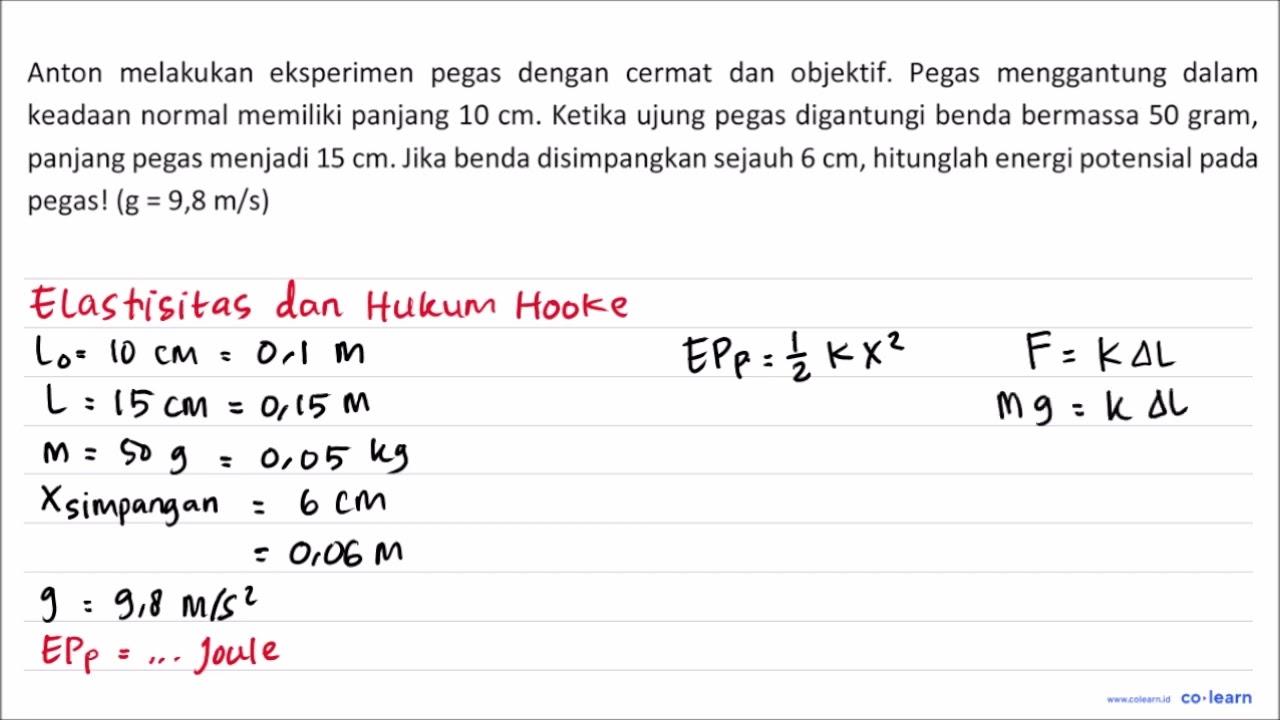 Anton melakukan eksperimen pegas dengan cermat dan objektif. Pegas menggantung dalam
keadaan normal memiliki panjang 10 cm. Ketika ujung pegas digantungi benda bermassa 50 gram,
panjang pegas menjadi 15 cm. Jika benda disimpangkan sejauh 6 cm, hitunglah energi potensial pada
pegas! (g = 9,8 m/s)
Elastisitas dan Hukum Hooke
L₀ = 10 cm = 0,1 m
L = 15 cm = 0,15 m
m = 50 g = 0,05 kg
x simpangan = 6 cm
= 0,06 m
g = 9,8 m/s²
EPp = ... Joule
EPp = 1/2 k x²
F = k ΔL
mg = k ΔL
www.colearn.id co·learn